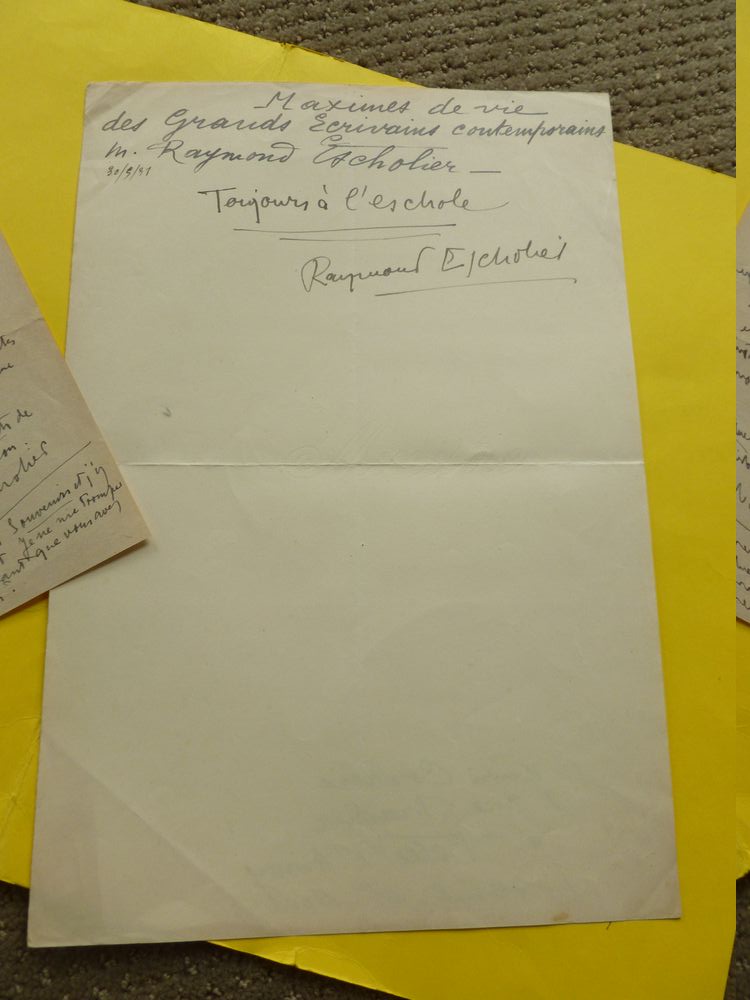 Maximes de vie
des Grands Ecrivains contemporains
M. Raymond Escholier —
30/5/31
Toujours à l'eschole
Raymond Escholier
de
Souvenirs et j'y
je ne me trompe
que vous avez